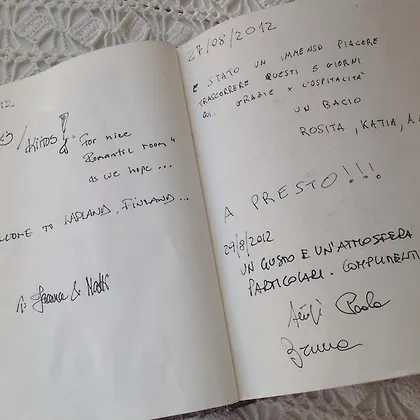 12.
KIITOS! For nice
Romantic room
as we hope ...
COME TO LAPLAND, FINLAND ...
27/08/2012
E STATO UN IMMENSO PIACERE
TRASCORRERE QUESTI 5 GIORNI
QUI. GRAZIE X L'OSPITALITÀ
UN BACIO
ROSITA, KATIA,
A PRESTO!!!
29/8/2012
UN GUSTO E UN'ATMOSFERA
PARTICOLARI. COMPLIMENTI
Paola
Bruna